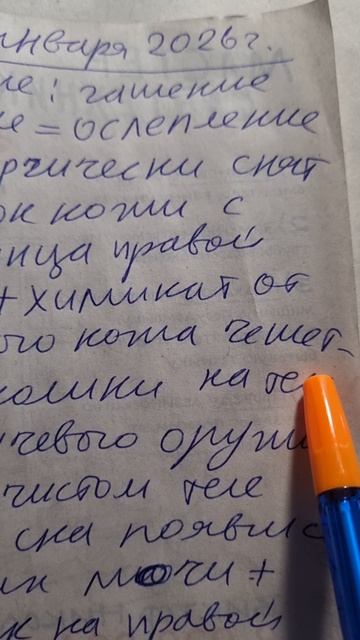 января 2026г.
ие: гашение
е = ослепление
ргически снят
ок кожи с
ица правой
+ химикат от
ого кожа чешет-
колики на те
чевого оружи
чистом теле
сна появис
ик мочи +
к на правой